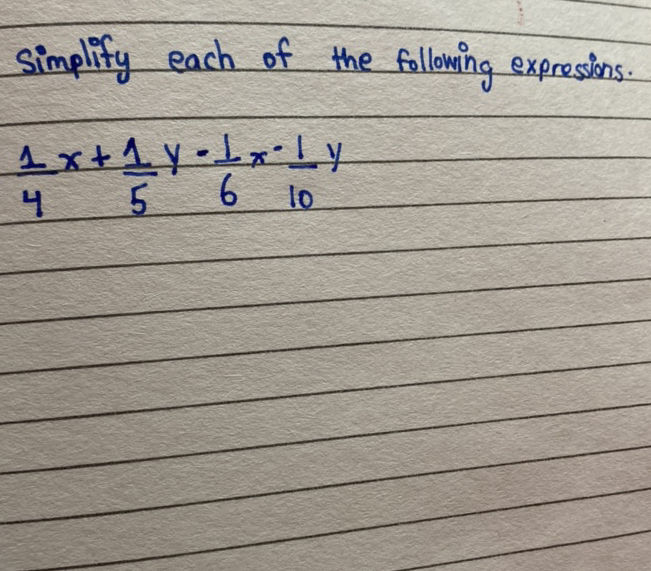 Simplify each of the following expressions.
1/4 x + 1/5 y - 1/6 x - 1/10 y